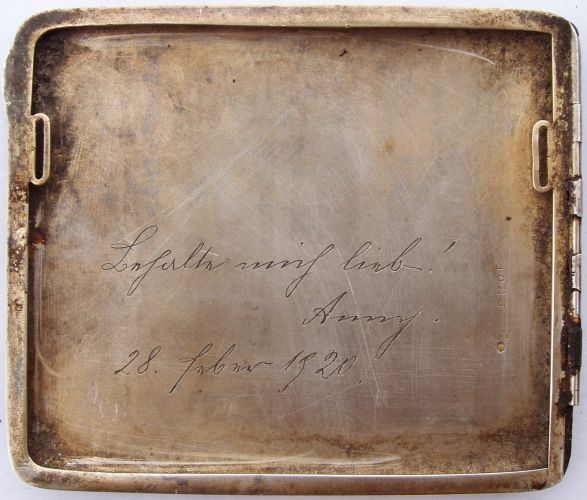 Behalte mich lieb!
Anny.
28. feber 1920.